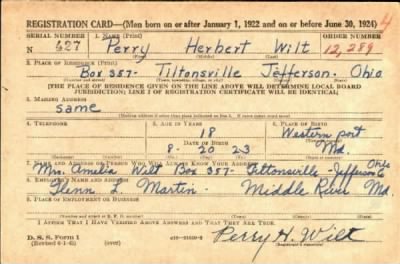 REGISTRATION CARD—(Men born on or after January 1, 1922 and on or before June 30, 1924) 4
SERIAL NUMBER 1. NAME (Print) ORDER NUMBER
N 427 Perry Herbert Wilt 12,289
2. PLACE OF RESIDENCE (Print)
Box 357- Tiltonsville Jefferson Ohio
[THE PLACE OF RESIDENCE GIVEN ON THE LINE ABOVE WILL DETERMINE LOCAL BOARD
JURISDICTION; LINE 2 OF REGISTRATION CERTIFICATE WILL BE IDENTICAL]
3. MAILING ADDRESS
same
4. TELEPHONE 5. AGE IN YEARS 6. PLACE OF BIRTH
18 Western port
DATE OF BIRTH
8- 20 23 Md.
7. NAME AND ADDRESS OF PERSON WHO WILL ALWAYS KNOW YOUR ADDRESS
Mrs. Amelia Wilt Box 357- Tiltonsville-Jefferson Co Ohio
8. EMPLOYER'S NAME AND ADDRESS
Glenn L. Martin- Middle River Md.
9. PLACE OF EMPLOYMENT OR BUSINESS
I AFFIRM THAT I HAVE VERIFIED ABOVE ANSWERS AND THAT THEY ARE TRUE.
D. S. S. Form 1
Perry H. Wilt